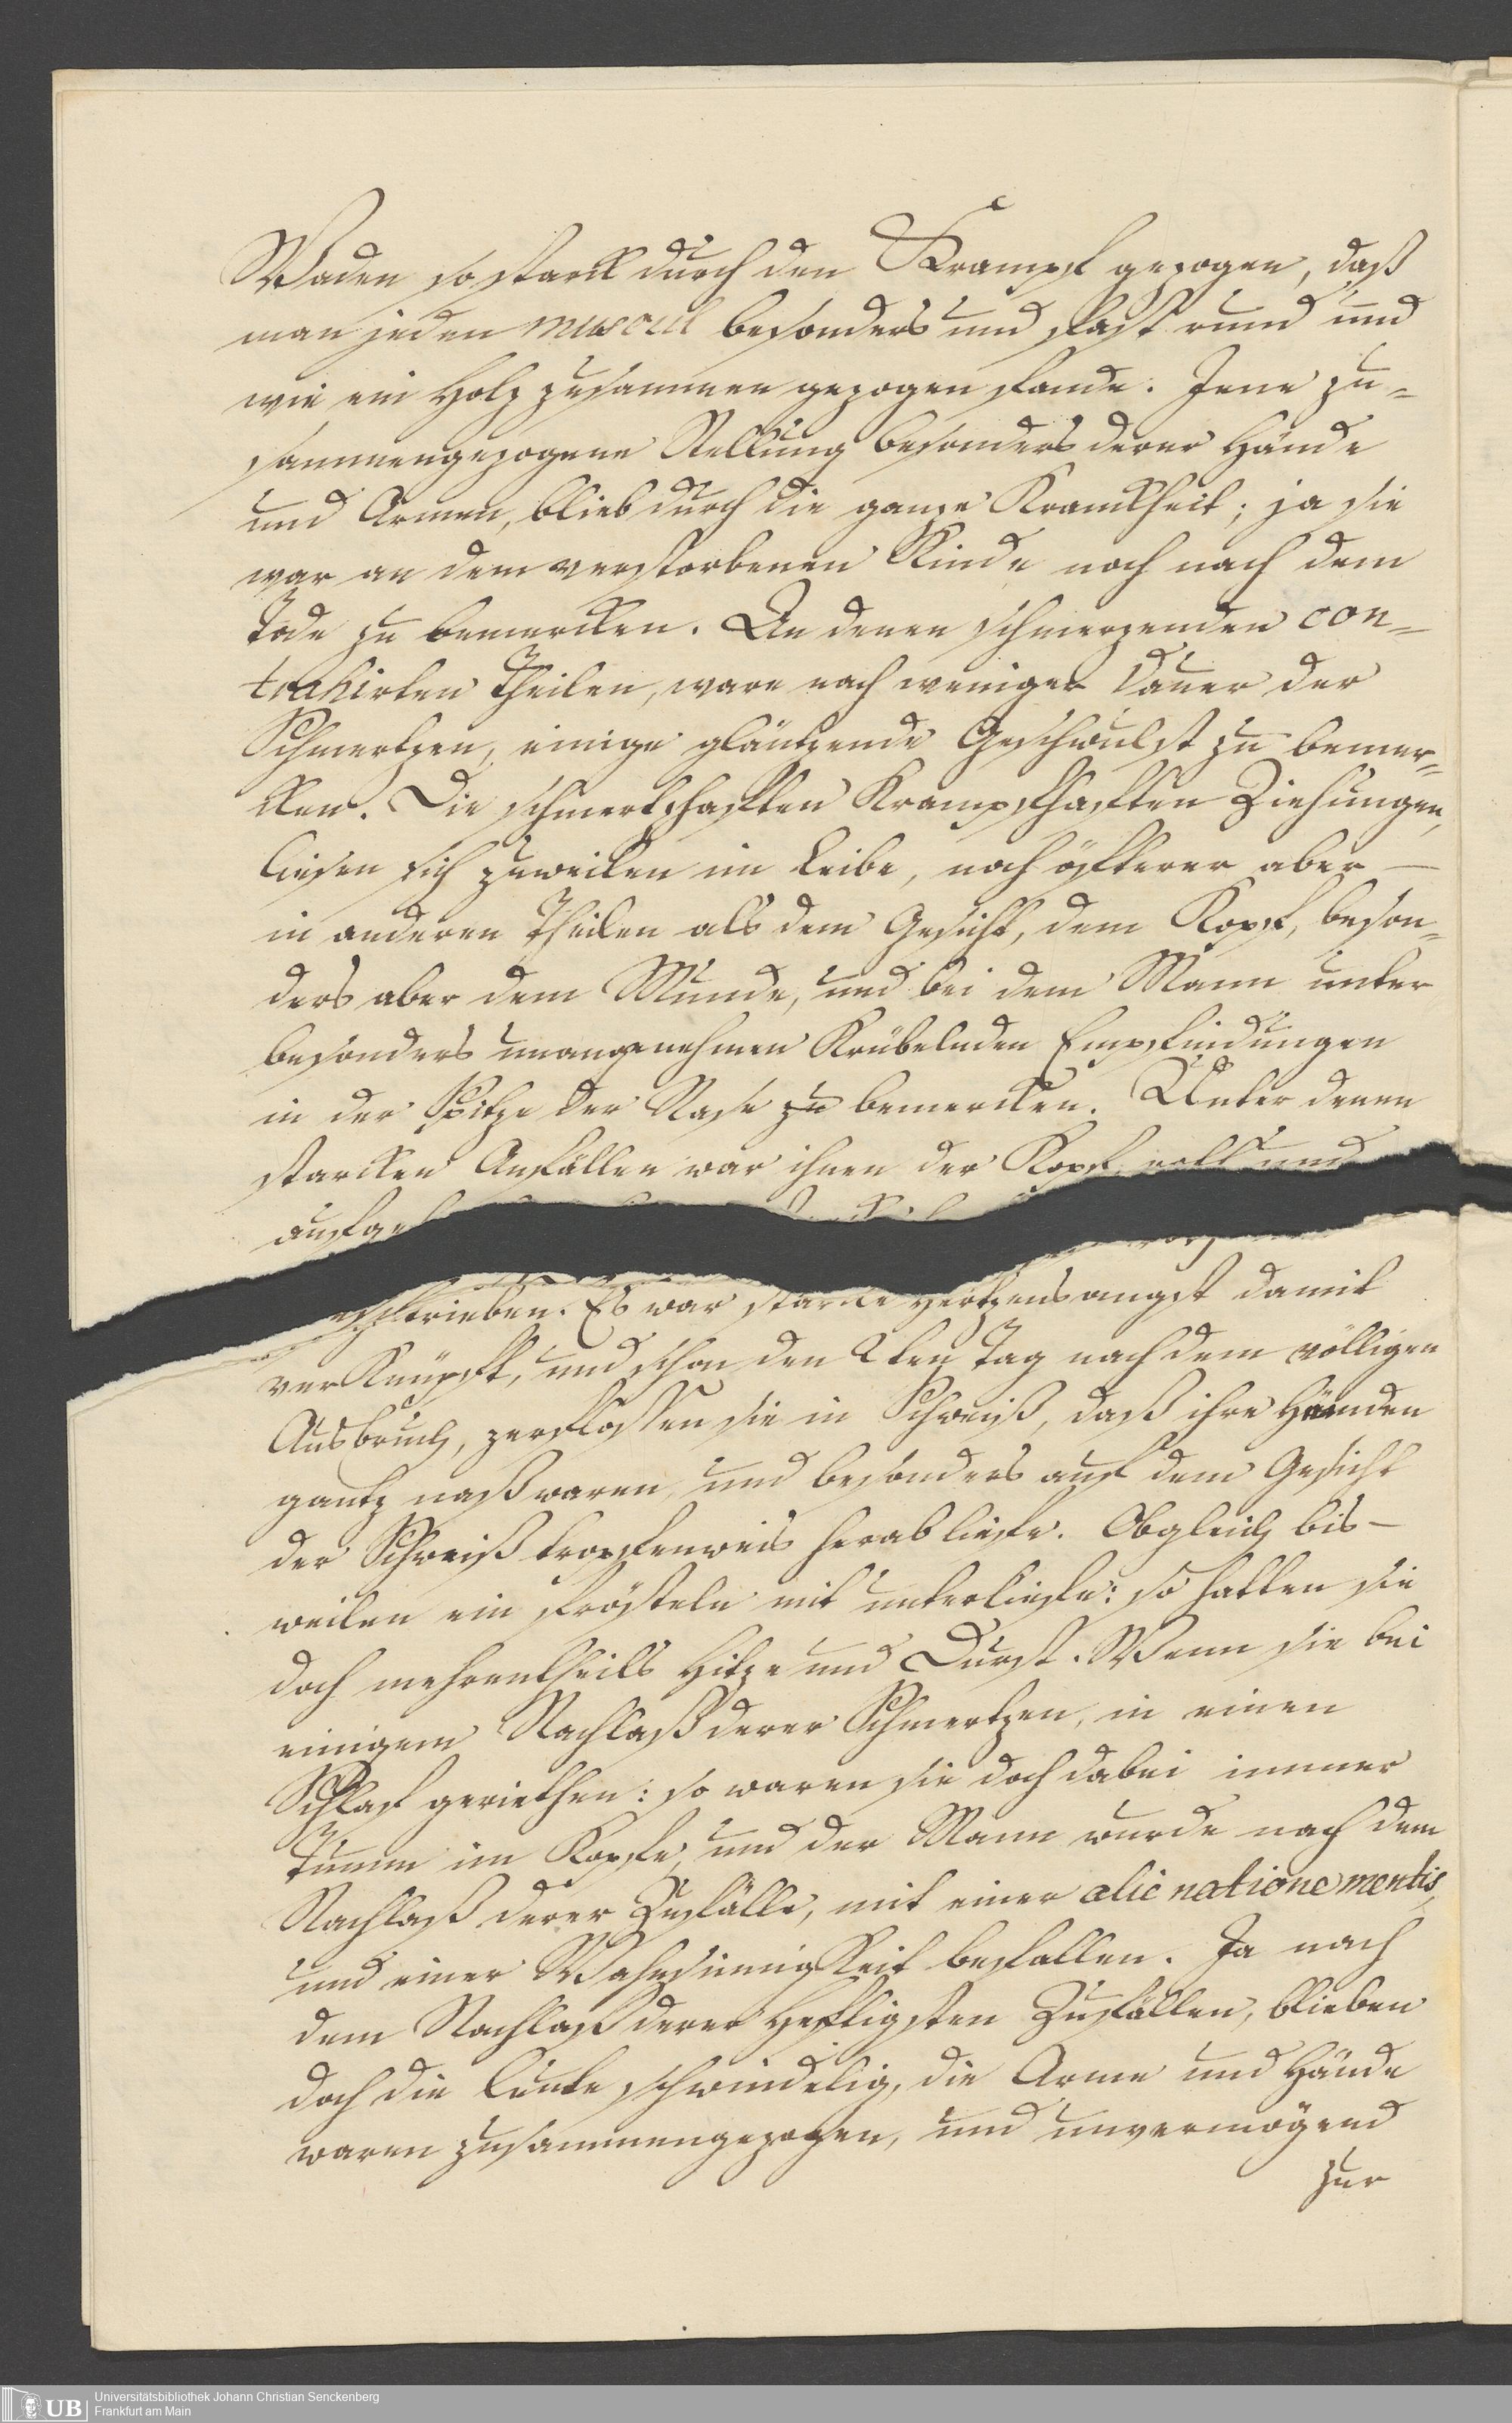 Waden so starck durch den Krampf gezogen, daß
man jeden muscul besonders und fast rund und
wie ein Holz zusammen gezogen fande. Jene zu-
sammengezogene Stellung besonders derer Hände
und Armen, blieb durch die ganze Kranckheit; ja sie
war an dem verstorbenen Kinde noch nach dem
Tode zu bemercken. An denen schmerzenden con-
trahirten Theilen, ware nach weniger Dauer der
Schmertzen, einige gläntzende Geschwulst zu bemer-
cken. Die schmertzhafften Krampfhafften Ziehungen,
liesen sich zuweilen im Leibe, noch öffterer aber —
in anderen Theilen als dem Gesicht, dem Kopf, beson-
ders aber dem Munde, und bei dem Mann unter
besonders unangenehmen Krübelnden Empfindungen
in der Spitze der Nase zu bemercken. Unter denen
starcken Anfällen war ihnen der Kopf voll und
aufge
trieben. Es war starcke Hertzensangst damit
verknüpft, und schon den 2ten Tag nach dem völligen
Ausbruch, zerflossen sie in Schweiß, daß ihre Hände
gantz naß waren, und besonders auf dem Gesicht
der Schweiß tropfenweis herabliefe. Obgleich bis-
weilen ein frösteln mit unterliefe: so hatten sie
doch mehrentheils Hitze und Durst. Wenn sie bei
einigem Nachlaß derer Schmertzen, in einen
Schlaf geriethen: so waren sie doch dabei immer
Tumm im Kopfe, und der Mann wurde nach dem
Nachlaß derer Zufälle, mit einer alienatione mentis,
und einer Wahnsinnigkeit befallen. Ja nach
dem Nachlaß derer Hefftigsten Zufällen, blieben
doch die Leute schwindelig, die Arme und Hände
waren zusammengezogen, und unvermögend
zur
Universitätsbibliothek Johann Christian Senckenberg
Frankfurt am Main
UB